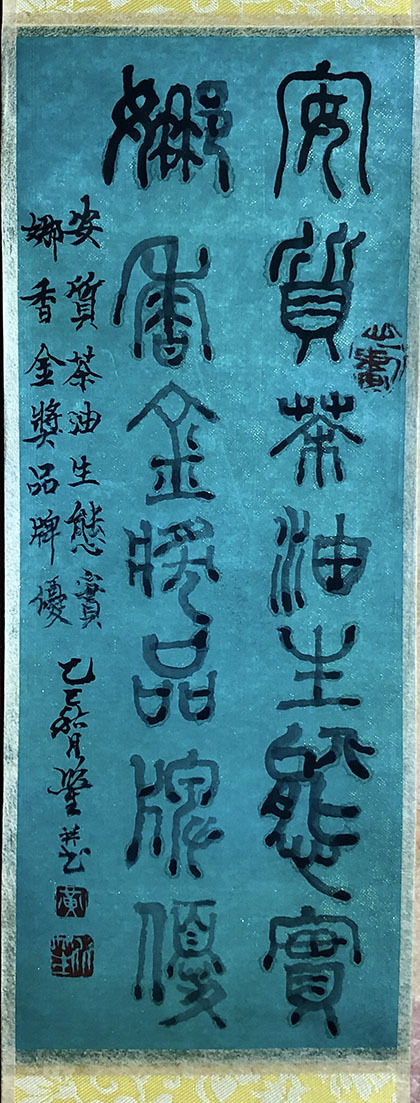 安質茶油生態實
娜香金獎品牌優
安質茶油生態實
娜香金獎品牌優
乙巳 月堅 書
黃